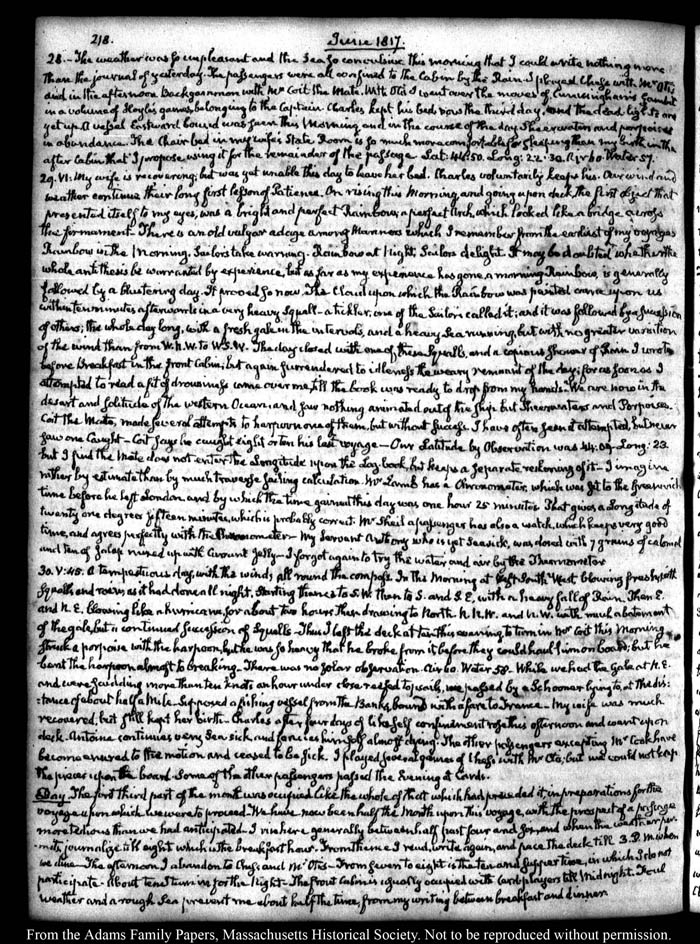 218.
June 1817.
28.— The weather was so unpleasant and the Sea so convulsive this morning that I could write nothing more
than the journal of yesterday. The passengers were all confined to the Cabin by the Rain. I played Chess with Mr Otis
and in the afternoon Backgammon with Mr Coit the Mate. With Otis I went over the moves of Cunningham's Gambit
in a volume of Hoyle's games belonging to the Captain. Charles kept his bed now the third day, and the dead lights are
yet up. A vessel Eastward bound was seen this Morning and in the course of the day Shearwaters and porpoises
in abundance. The Chair bed in my wife's State Room is so much more comfortable for sleeping than my birth in the
after Cabin that I propose using it for the remainder of the passage. Lat. 44:50. Long: 22:30. Air 60. Water 57.
29. VI: My wife is recovering, but was yet unable this day to leave her bed. Charles voluntarily keeps his. Our wind and
weather continue their long first lesson of Patience. On rising this Morning, and going upon deck the first object that
presented itself to my eyes, was a bright and perfect Rainbow, a perfect Arch, which looked like a bridge across
the firmament. There is an old vulgar adage among Mariners which I remember from the earliest of my voyages
Rainbow in the Morning, Sailors take warning. Rainbow at Night, Sailors delight. It may be doubted whether the
whole antithesis be warranted by experience, but as far as my experience has gone, a morning Rainbow, is generally
followed by a blustering day. It proved so now. The Cloud upon which the Rainbow was painted came upon us
within ten minutes afterwards in a very heavy Squall— a tickler, one of the Sailors called it; and it was followed by a succession
of others; the whole day long, with a fresh gale in the intervals, and a heavy Sea running, but with no greater variation
of the wind than from W.N.W. to W.S.W. The day closed with one of these Squalls, and a copious shower of Rain. I wrote
before Breakfast in the front Cabin; but again surrendered to idleness the weary remnant of the day; for as soon as I
attempted to read a fit of drowsiness came over me, till the book was ready to drop from my hands. We are now in the
desart and solitude of the western Ocean; and saw nothing animated out of the ship but Shearwaters and Porpoises.
Coit the Mate, made several attempts to harpoon one of them, but without success. I have often seen it attempted, but never
saw one Caught— Coit says he caught eight or ten his last voyage— Our Latitude by Observation was 44:09. Long: 23.
but I find the Mate does not enter the Longitude upon the Log book, but keeps a separate reckoning of it— I imagine
rather by estimate than by much traverse sailing calculation. Mr Lamb has a Chronometer, which was set to the Greenwich
time before he left London, and by which the time gained this day was one hour 25 minutes. That gives a Longitude of
twenty one degrees fifteen minutes, which is probably correct. Mr Sheil a passenger has also a watch, which keeps very good
time, and agrees perfectly with the Chronometer— My Servant Antony who is yet Seasick, was dosed with 7 grains of calomel
and ten of Jalap mixed up with Currant Jelly— I forgot again to try the water and air by the Thermometer
30. V:45. A tempestuous day, with the wind, all round the compass. In the Morning at South West blowing fresh, with
Squalls and rain as it had done all night, starting thence to S.W. then to S. and S.E. with a heavy fall of Rain. Then E.
and N.E. blowing like a hurricane for about two hours then drawing to North. N.N.W. and N.W. with much abatement
of the gale, but a continued succession of Squalls— Thus I left the deck at ten this evening to turn in. Mr Coit this Morning
struck a porpoise with the harpoon, but he was so heavy that he broke from it before they could haul him on board; but he
bent the harpoon almost to breaking. There was no Solar observation. Air 60. Water 58. While we had the Gale at N.E.
and were scudding more than ten knots an hour under close reefed topsails, we passed by a Schooner lying to, at the dis-
tance of about half a Mile. Supposed a fishing vessel from the Banks, bound with a fare to France. My wife was much
recovered, but still kept her birth. Charles after four days of like self confinement rose this afternoon and went upon
deck. Antoine continues very Sea sick, and fancies himself almost dying. The other passengers excepting Mr Cook have
become enured to the motion and ceased to be sick. I played several games of Chess with Mr Otis; but we could not keep
the pieces upon the board. Some of the other passengers passed the Evening at Cards.
Day. The first third part of the month was occupied like the whole of that which had preceded it, in preparations for the
voyage upon which we were to proceed. We have now been half the Month upon this voyage, with the prospect of a passage
more tedious than we had anticipated. I rise here generally between half past four and six, and when the weather per-
mits, journalize till eight which is the breakfast hour. From thence I read, write again, and pace the deck till 3. P.M. when
we dine. The afternoon I abandon to Chess and Mr Otis— From seven to eight is the tea and supper time, in which I do not
participate. About ten I turn in for the Night. The front Cabin is usually occupied with Card players till Midnight. Foul
weather and a rough Sea prevent me about half the time, from my writing between breakfast and dinner.
From the Adams Family Papers, Massachusetts Historical Society. Not to be reproduced without permission.